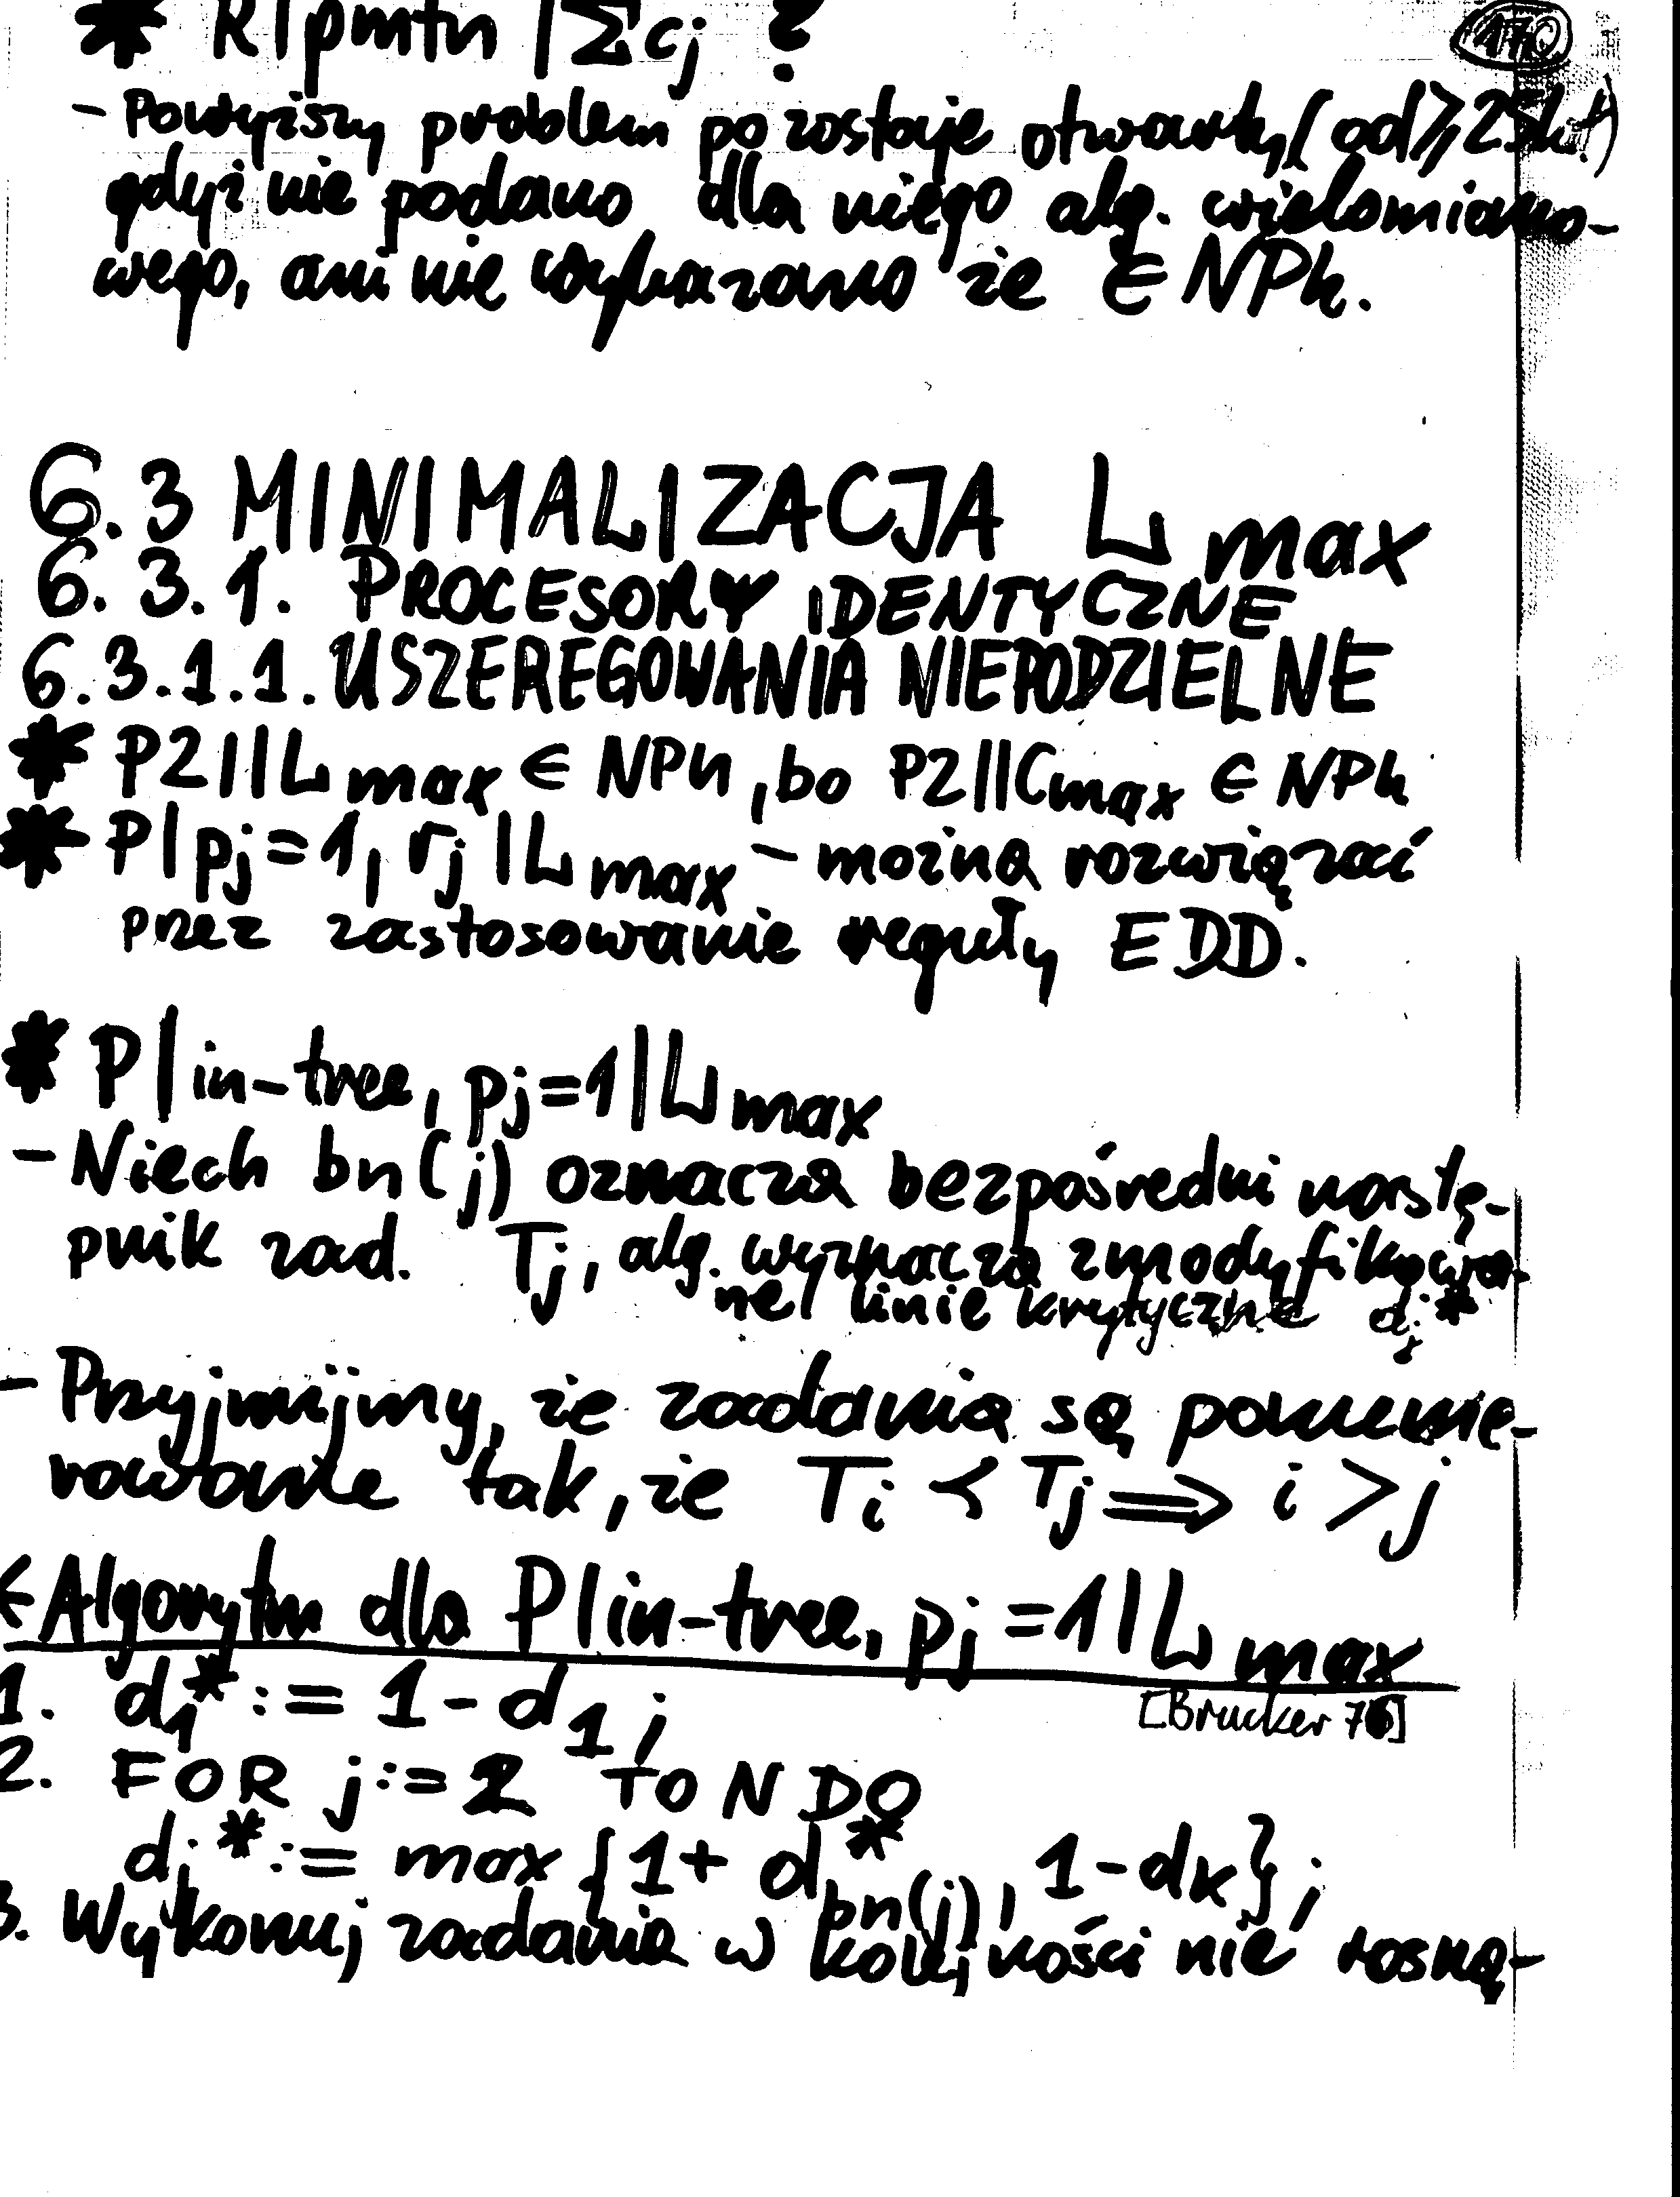 * R|pmtn|Σcj ?
170
- Powyższy problem pozostaje otwarty (od ≥ 25 lat)
gdyż nie podano dla niego alg. wielomiano-
wego, ani nie wykazano że ∈ NPh.
6.3 MINIMALIZACJA Lmax
6.3.1. PROCESORY IDENTYCZNE
6.3.1.1. USZEREGOWANIA NIEPODZIELNE
* P2||Lmax ∈ NPh, bo P2||Cmax ∈ NPh
* P|pj=1, rj|Lmax - można rozwiązać
przez zastosowanie reguły EDD.
* P|in-tree, pj=1|Lmax
- Niech bn(j) oznacza bezpośredni nastę-
pnik zad. Tj, alg. wyznacza zmodyfikowa-
ne linie krytyczne dj*
- Przyjmijmy, że zadania są ponume-
rowane tak, że Ti ≺ Tj ⟹ i > j
Algorytm dla P|in-tree, pj=1|Lmax
[Brucker 76]
1. d1* := 1 - d1;
2. FOR j:=2 TO N DO
dj* := max{1 + d*bn(j), 1-dk};
3. Wykonuj zadania w kolejności nie rosną-